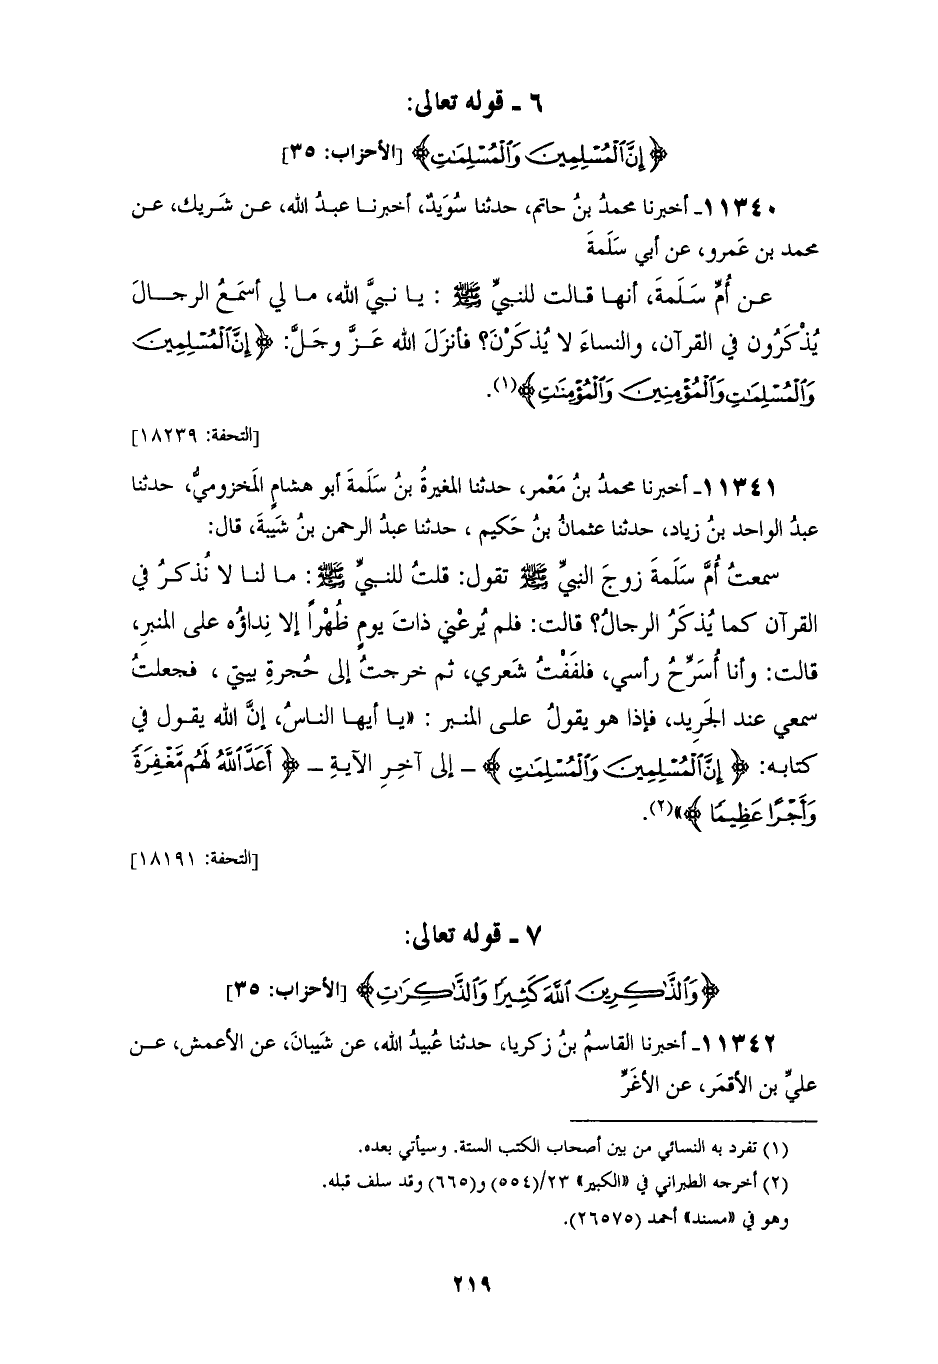 ٦ ـ قوله تعالى:
﴿إِنَّ ٱلْمُسْلِمِينَ وَٱلْمُسْلِمَٰتِ﴾ [الأحزاب: ٣٥]
١١٣٤٠ـ أخبرنا محمدُ بنُ حاتم، حدثنا سُوَيدٌ، أخبرنا عبدُ الله، عن شَريك، عن
محمد بن عَمرو، عن أبي سَلَمةَ
عن أُمِّ سَلَمةَ، أنها قالت للنبيِّ ﷺ : يا نبيَّ الله، ما لي أَسمَعُ الرجالَ
يُذْكَرُون في القرآن، والنساءَ لا يُذكَرْنَ؟ فأنزلَ الله عَزَّ وجَلَّ: ﴿إِنَّ ٱلْمُسْلِمِينَ
وَٱلْمُسْلِمَٰتِ وَٱلْمُؤْمِنِينَ وَٱلْمُؤْمِنَٰتِ﴾(١).
[التحفة: ١٨٢٣٩]
١١٣٤١ـ أخبرنا محمدُ بنُ مَعْمر، حدثنا المغيرةُ بنُ سَلَمةَ أبو هشامٍ المَخزوميُّ، حدثنا
عبدُ الواحد بنُ زياد، حدثنا عثمانُ بنُ حَكيم ، حدثنا عبدُ الرحمن بنُ شَيبةَ، قال:
سمعتُ أُمَّ سَلَمةَ زوجَ النبيِّ ﷺ تقول: قلتُ للنبيِّ ﷺ: ما لنا لا نُذكَرُ في
القرآن كما يُذكَرُ الرجالُ؟ قالت: فلم يُرعْني ذاتَ يومٍ ظُهْراً إلا نِداؤُه على المنبرِ،
قالت: وأنا أُسَرِّحُ رأسي، فلفَفْتُ شَعري، ثم خرجتُ إلى حُجرةِ بيتي ، فجعلتُ
سمعي عند الجَرِيد، فإذا هو يقولُ على المنبر : «يا أيها الناسُ، إنَّ الله يقول في
كتابه: ﴿ إِنَّ ٱلْمُسْلِمِينَ وَٱلْمُسْلِمَٰتِ ﴾ ـ إلى آخِرِ الآيةِ ـ ﴿ أَعَدَّ ٱللَّهُ لَهُم مَّغْفِرَةً
وَأَجْرًا عَظِيمًا ﴾»(٢).
[التحفة: ١٨١٩١]
٧ ـ قوله تعالى:
﴿وَٱلذَّٰكِرِينَ ٱللَّهَ كَثِيرًا وَٱلذَّٰكِرَٰتِ﴾ [الأحزاب: ٣٥]
١١٣٤٢ـ أخبرنا القاسمُ بنُ زكريا، حدثنا عُبيدُ الله، عن شَيبانَ، عن الأعمش، عن
عليِّ بن الأقمَر، عن الأغَرِّ
(١) تفرد به النسائي من بين أصحاب الكتب الستة. وسيأتي بعده.
(٢) أخرجه الطبراني في «الكبير» ٢٣/(٥٥٤) و(٦٦٥) وقد سلف قبله.
وهو في «مسند» أحمد (٢٦٥٧٥).
٢١٩